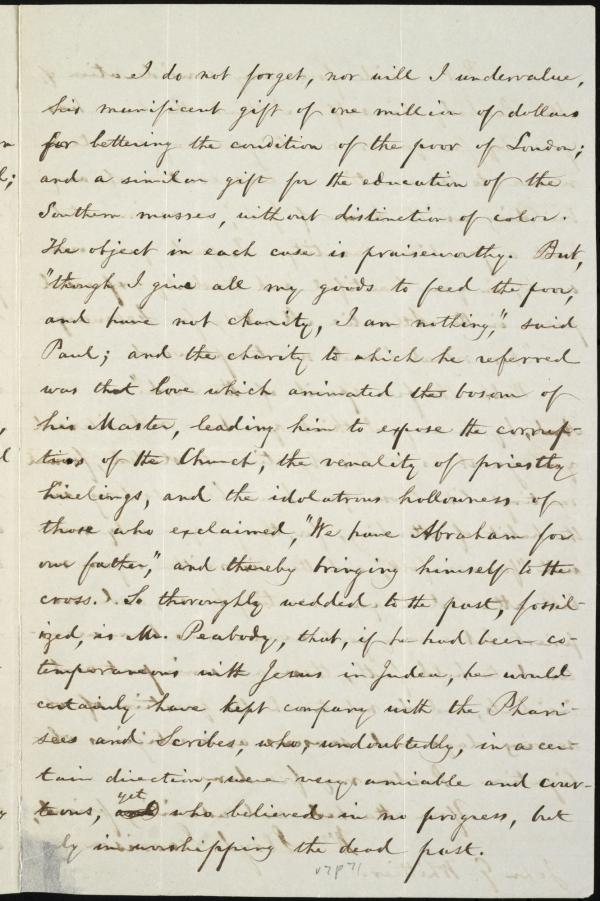 I do not forget, nor will I undervalue,
his munificent gift of one million of dollars
for bettering the condition of the poor of London;
and a similar gift for the education of the
Southern masses, without distinction of color.
The object in each case is praiseworthy. But,
"though I give all my goods to feed the poor,
and have not charity, I am nothing," said
Paul; and the charity to which he referred
was that love which animated the bosom of
his Master, leading him to expose the corrup-
tions of the Church, the venality of priestly
hirelings, and the idolatrous hollowness of
those who exclaimed, "We have Abraham for
our father," and thereby bringing himself to the
cross. So thoroughly wedded to the past, fossil-
ized, is Mr. Peabody, that, if he had been co-
temporaneous with Jesus in Judea, he would
certainly have kept company with the Phari-
sees and Scribes, who, undoubtedly, in a cer-
tain direction, were very amiable and cour-
yet
teous, and who believed in no progress, but
ly in worshipping the dead past.
v7p71